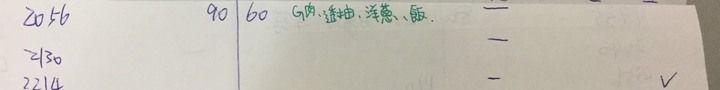 2056 90 60 G肉、蓮抽、洋蔥、飯. —
2130 —
2214 — ✓